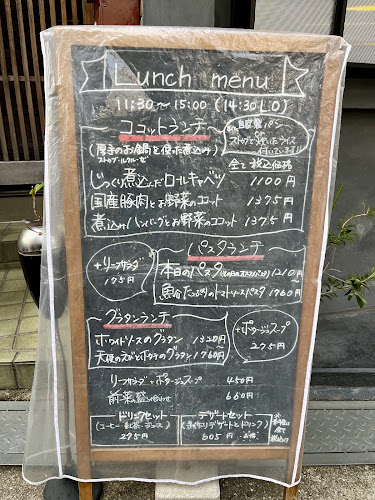 Lunch menu
11:30~15:00 (14:30 L.O)
ココットランチ
(厚手のお鍋を使った煮込み)
ストウブ・ル・クルーゼ
自家製パン
又は
ライス
付いています
全て税込価格
じっくり煮込んだロールキャベツ 1100円
国産豚肉とお野菜のココット 1375円
煮込みハンバーグとお野菜のココット 1375円
パスタランチ
+リーフサラダ
175円
本日のパスタ 1210円
~
魚介たっぷりのトマトソースパスタ 1760円
グラタンランチ
ホワイトソースのグラタン 1320円
~
天使のえびとホタテのグラタン 1760円
+ポタージュスープ
275円
リーフサラダ+ポタージュスープ 450円
前菜盛り合わせ 660円
ドリンクセット
(コーヒー・紅茶・ジュース)
275円
デザートセット
(手作りデザートとドリンク)
605円